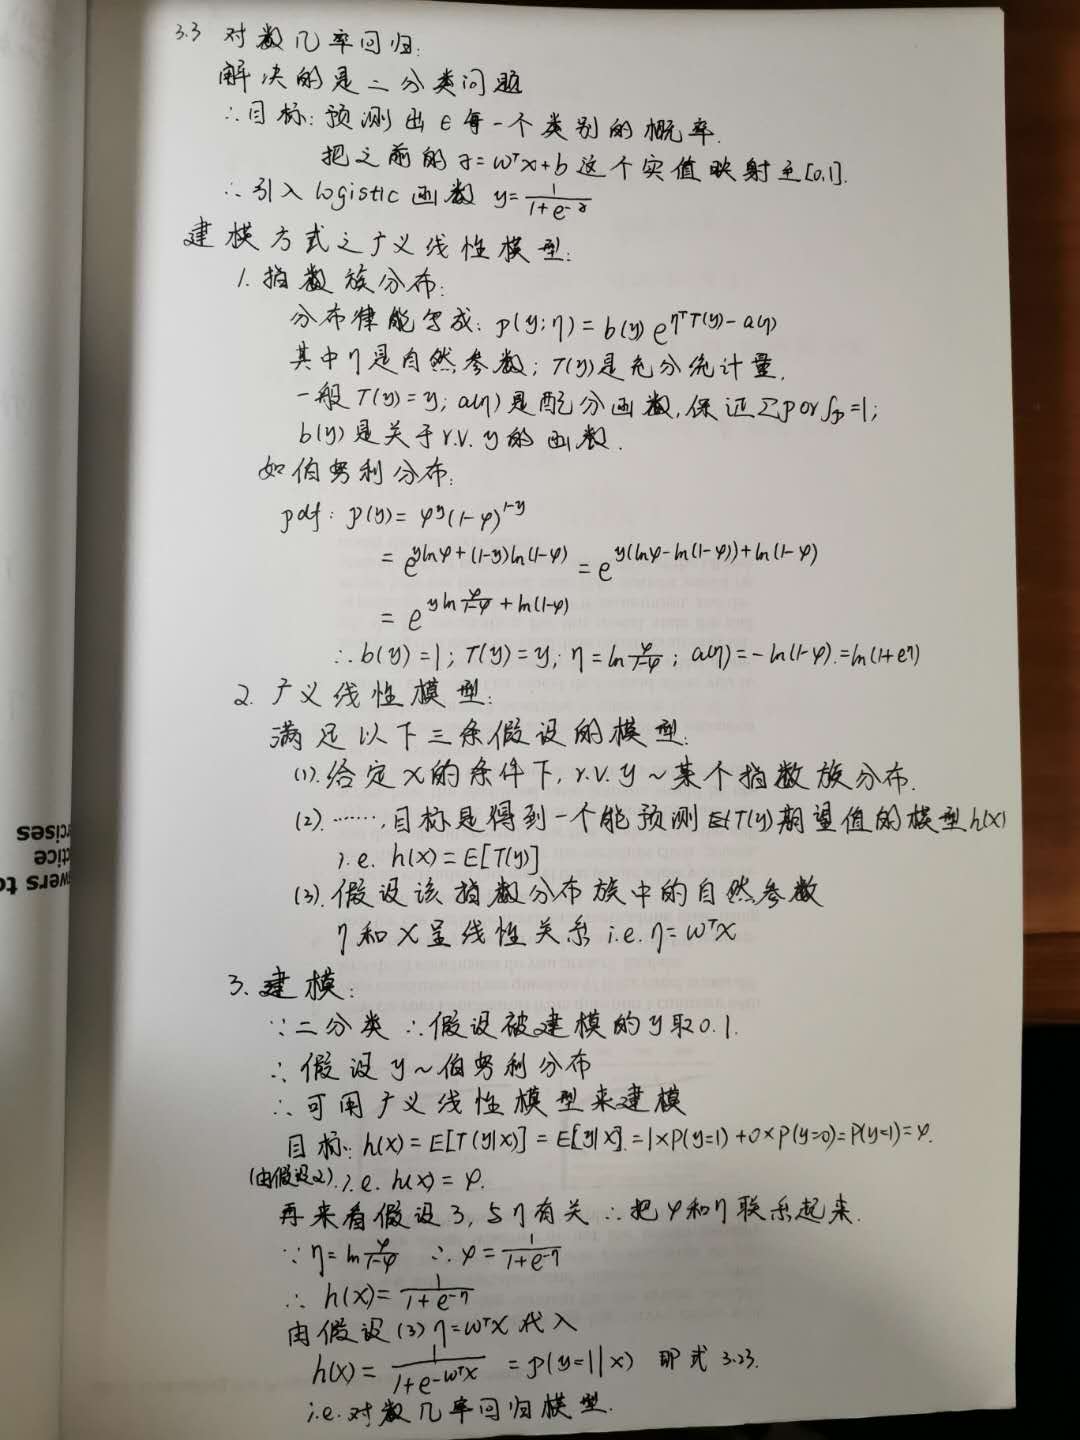 3.3 对数几率回归:
解决的是二分类问题
∴目标: 预测出 每一个类别的概率.
把之前的 z=wᵀx+b 这个实值映射至[0,1].
∴引入 logistic 函数 y=1/(1+e^(-z))
建模方式之广义线性模型:
1. 指数族分布:
分布律能写成: p(y;η) = b(y) e^(ηᵀT(y)-a(η))
其中η是自然参数; T(y)是充分统计量.
一般 T(y)=y; a(η)是配分函数, 保证∑p or ∫p=1;
b(y)是关于 r.v. y 的函数.
如伯努利分布:
pdf: p(y)= φ^y(1-φ)^(1-y)
= e^(ylnφ+(1-y)ln(1-φ)) = e^(y(lnφ-ln(1-φ))+ln(1-φ))
= e^(yln φ/(1-φ) + ln(1-φ))
∴b(y)=1; T(y)=y; η=ln φ/(1-φ); a(η)=-ln(1-φ).=ln(1+e^η)
2. 广义线性模型:
满足以下三条假设的模型:
(1). 给定x的条件下, r.v. y ~ 某个指数族分布.
(2). ……, 目标是得到一个能预测 T(y)期望值的模型h(x)
i.e. h(x)=E[T(y)]
(3). 假设该指数分布族中的自然参数
η和x呈线性关系 i.e. η=wᵀx
3. 建模:
∵二分类 ∴假设被建模的y取0.1.
∴假设 y~伯努利分布
∴可用广义线性模型来建模
目标: h(x)=E[T(y|x)]=E[y|x].=1×P(y=1)+0×P(y=0)=P(y=1)=φ.
(由假设2). i.e. h(x)=φ.
再来看假设3, 与η有关 ∴把φ和η联系起来.
∵η=ln φ/(1-φ) ∴φ=1/(1+e^(-η))
∴h(x)=1/(1+e^(-η))
由假设(3) η=wᵀx 代入
h(x)=1/(1+e^(-wᵀx)) =p(y=1|x) 即式 3.23.
i.e. 对数几率回归模型.